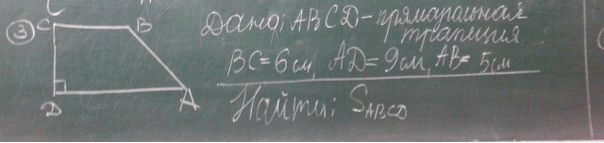 C
③ C B
Дано: ABCD - прямоугольная
трапеция
BC = 6 см, AD = 9 см, AB = 5 см
D A
Найти: S ABCD